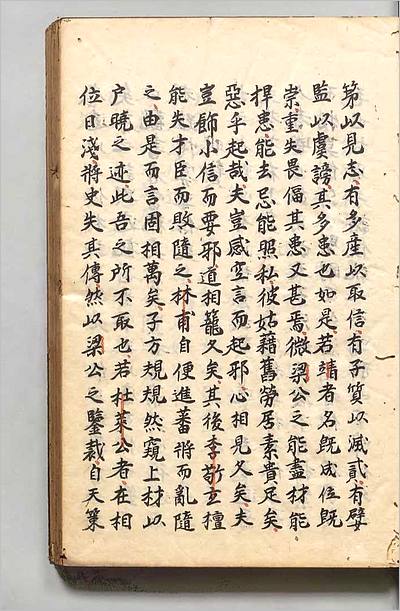 第以見志有多産以取信有子質以滅貳有嬖
監以虞謗其多患也如是若靖者名既成位既
崇重失畏偪其患又甚焉微梁公之能盡材能
捍患能去忌能照私彼姑藉舊勞居素貴足矣
惡乎起哉夫豈感空言而起邪心相見久矣夫
豈飾小信而要邪道相籠久矣其後李勣立擅
能失才臣而敗隨之林甫自便進蕃將而亂隨
之由是而言固相萬矣子方規規然窺上材以
户曉之迹此吾之所不取也若杜萊公者在相
位日淺將史失其傳然以梁公之鑒裁自天策